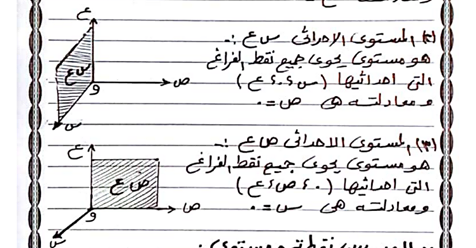 (٢) المستوى الإحداثى س ع :-
هو مستوى يحوى جميع نقط الفراغ
التى احداثيها (س ، ٠ ، ع)
ومعادلته هى ص = ٠
ع
س ع
و
ص
س
(٣) المستوى الاحداثى ص ع :-
هو مستوى يحوى جميع نقط الفراغ
التى احداثيها (٠ ، ص ، ع)
ومعادلته هى س = ٠
ع
ص ع
و
ص
س